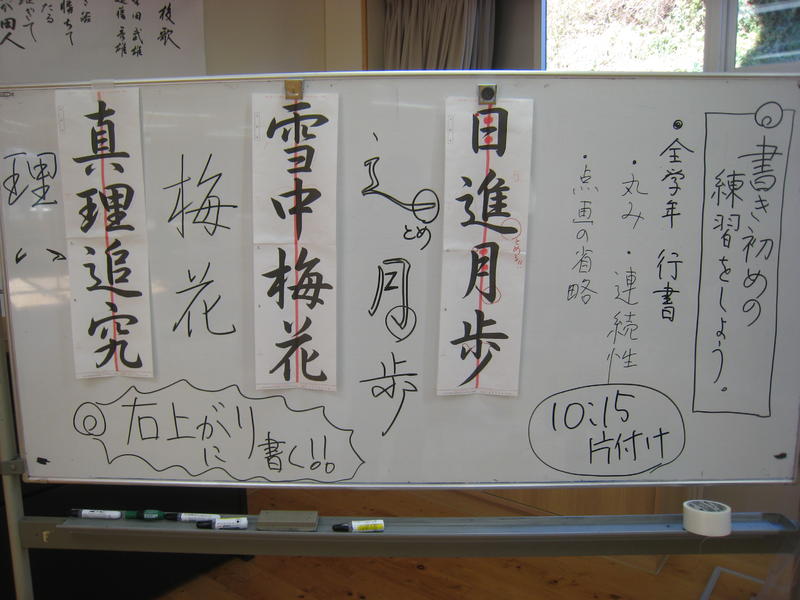 書き初めの
練習をしよう。
・全学年 行書
・丸み ・連続性
・点画の省略
10:15
片付け
日進月歩
とめる!!
とめ
月
歩
雪中梅花
梅花
真理追究
理
右上がり
に
書く!!